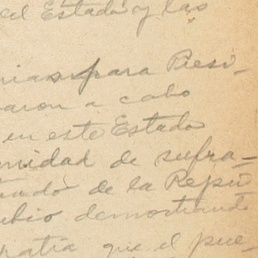 el Estado y las
nias para Presi-
aron a cabo
en este Estado
midad de sufra-
tado de la Repú
ubio demostrando
ratia que el pue-